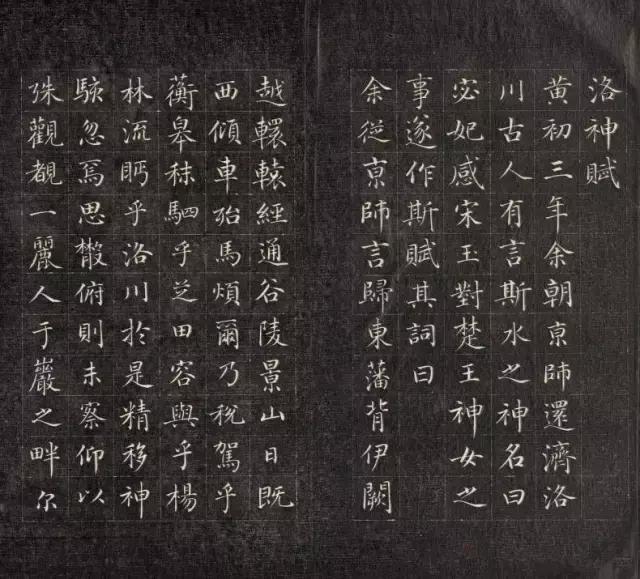 洛神賦
黄初三年余朝京師還濟洛
川古人有言斯水之神名曰
宓妃感宋玉對楚王神女之
事遂作斯賦其詞曰
余從京師言歸東藩背伊闕
越轘轅經通谷陵景山日既
西傾車殆馬煩爾乃稅駕乎
蘅皋秣駟乎芝田容與乎楊
林流眄乎洛川於是精移神
駭忽焉思散俯則未察仰以
殊觀覩一麗人于巖之畔尔